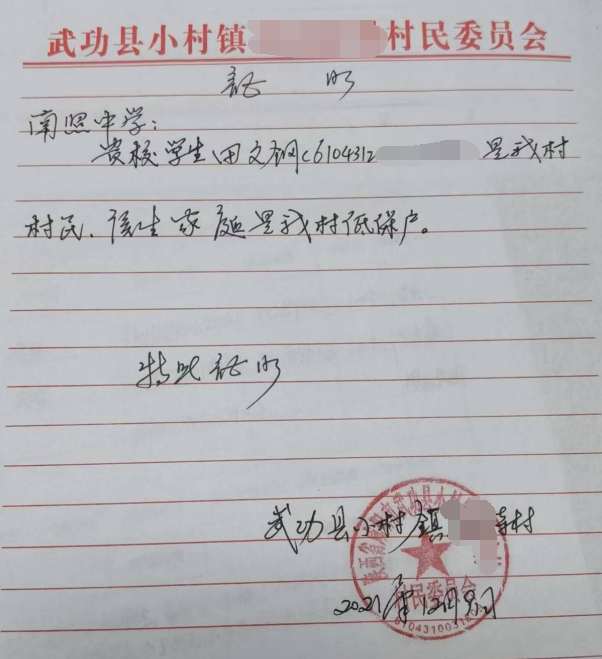 武功县小村镇 村民委员会
证 明
南照中学:
贵校学生田文钢(6104312 是我村
村民、该生家庭是我村低保户。
特此证明
武功县小村镇 寺村
村民委员会
2021年12月8日